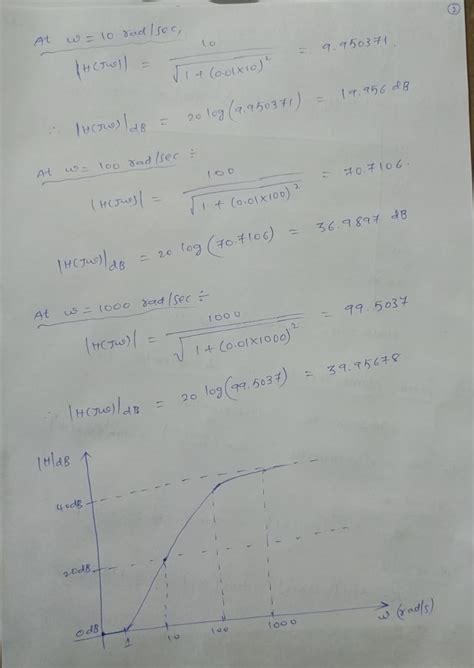 2
At ω = 10 rad/sec,
|H(Jω)| = 10 / √1 + (0.01×10)² = 9.950371.
∴ |H(Jω)|dB = 20 log(9.950371) = 19.956 dB
At ω = 100 rad/sec ÷
|H(Jω)| = 100 / √1 + (0.01×100)² = 70.7106.
|H(Jω)|dB = 20 log(70.7106) = 36.9897 dB
At ω = 1000 rad/sec ÷
|H(Jω)| = 1000 / √1 + (0.01×1000)² = 99.5037
∴ |H(Jω)|dB = 20 log(99.5037) = 39.95678
|H|dB
40dB
20dB
0dB
1 10 100 1000
ω (rad/s)